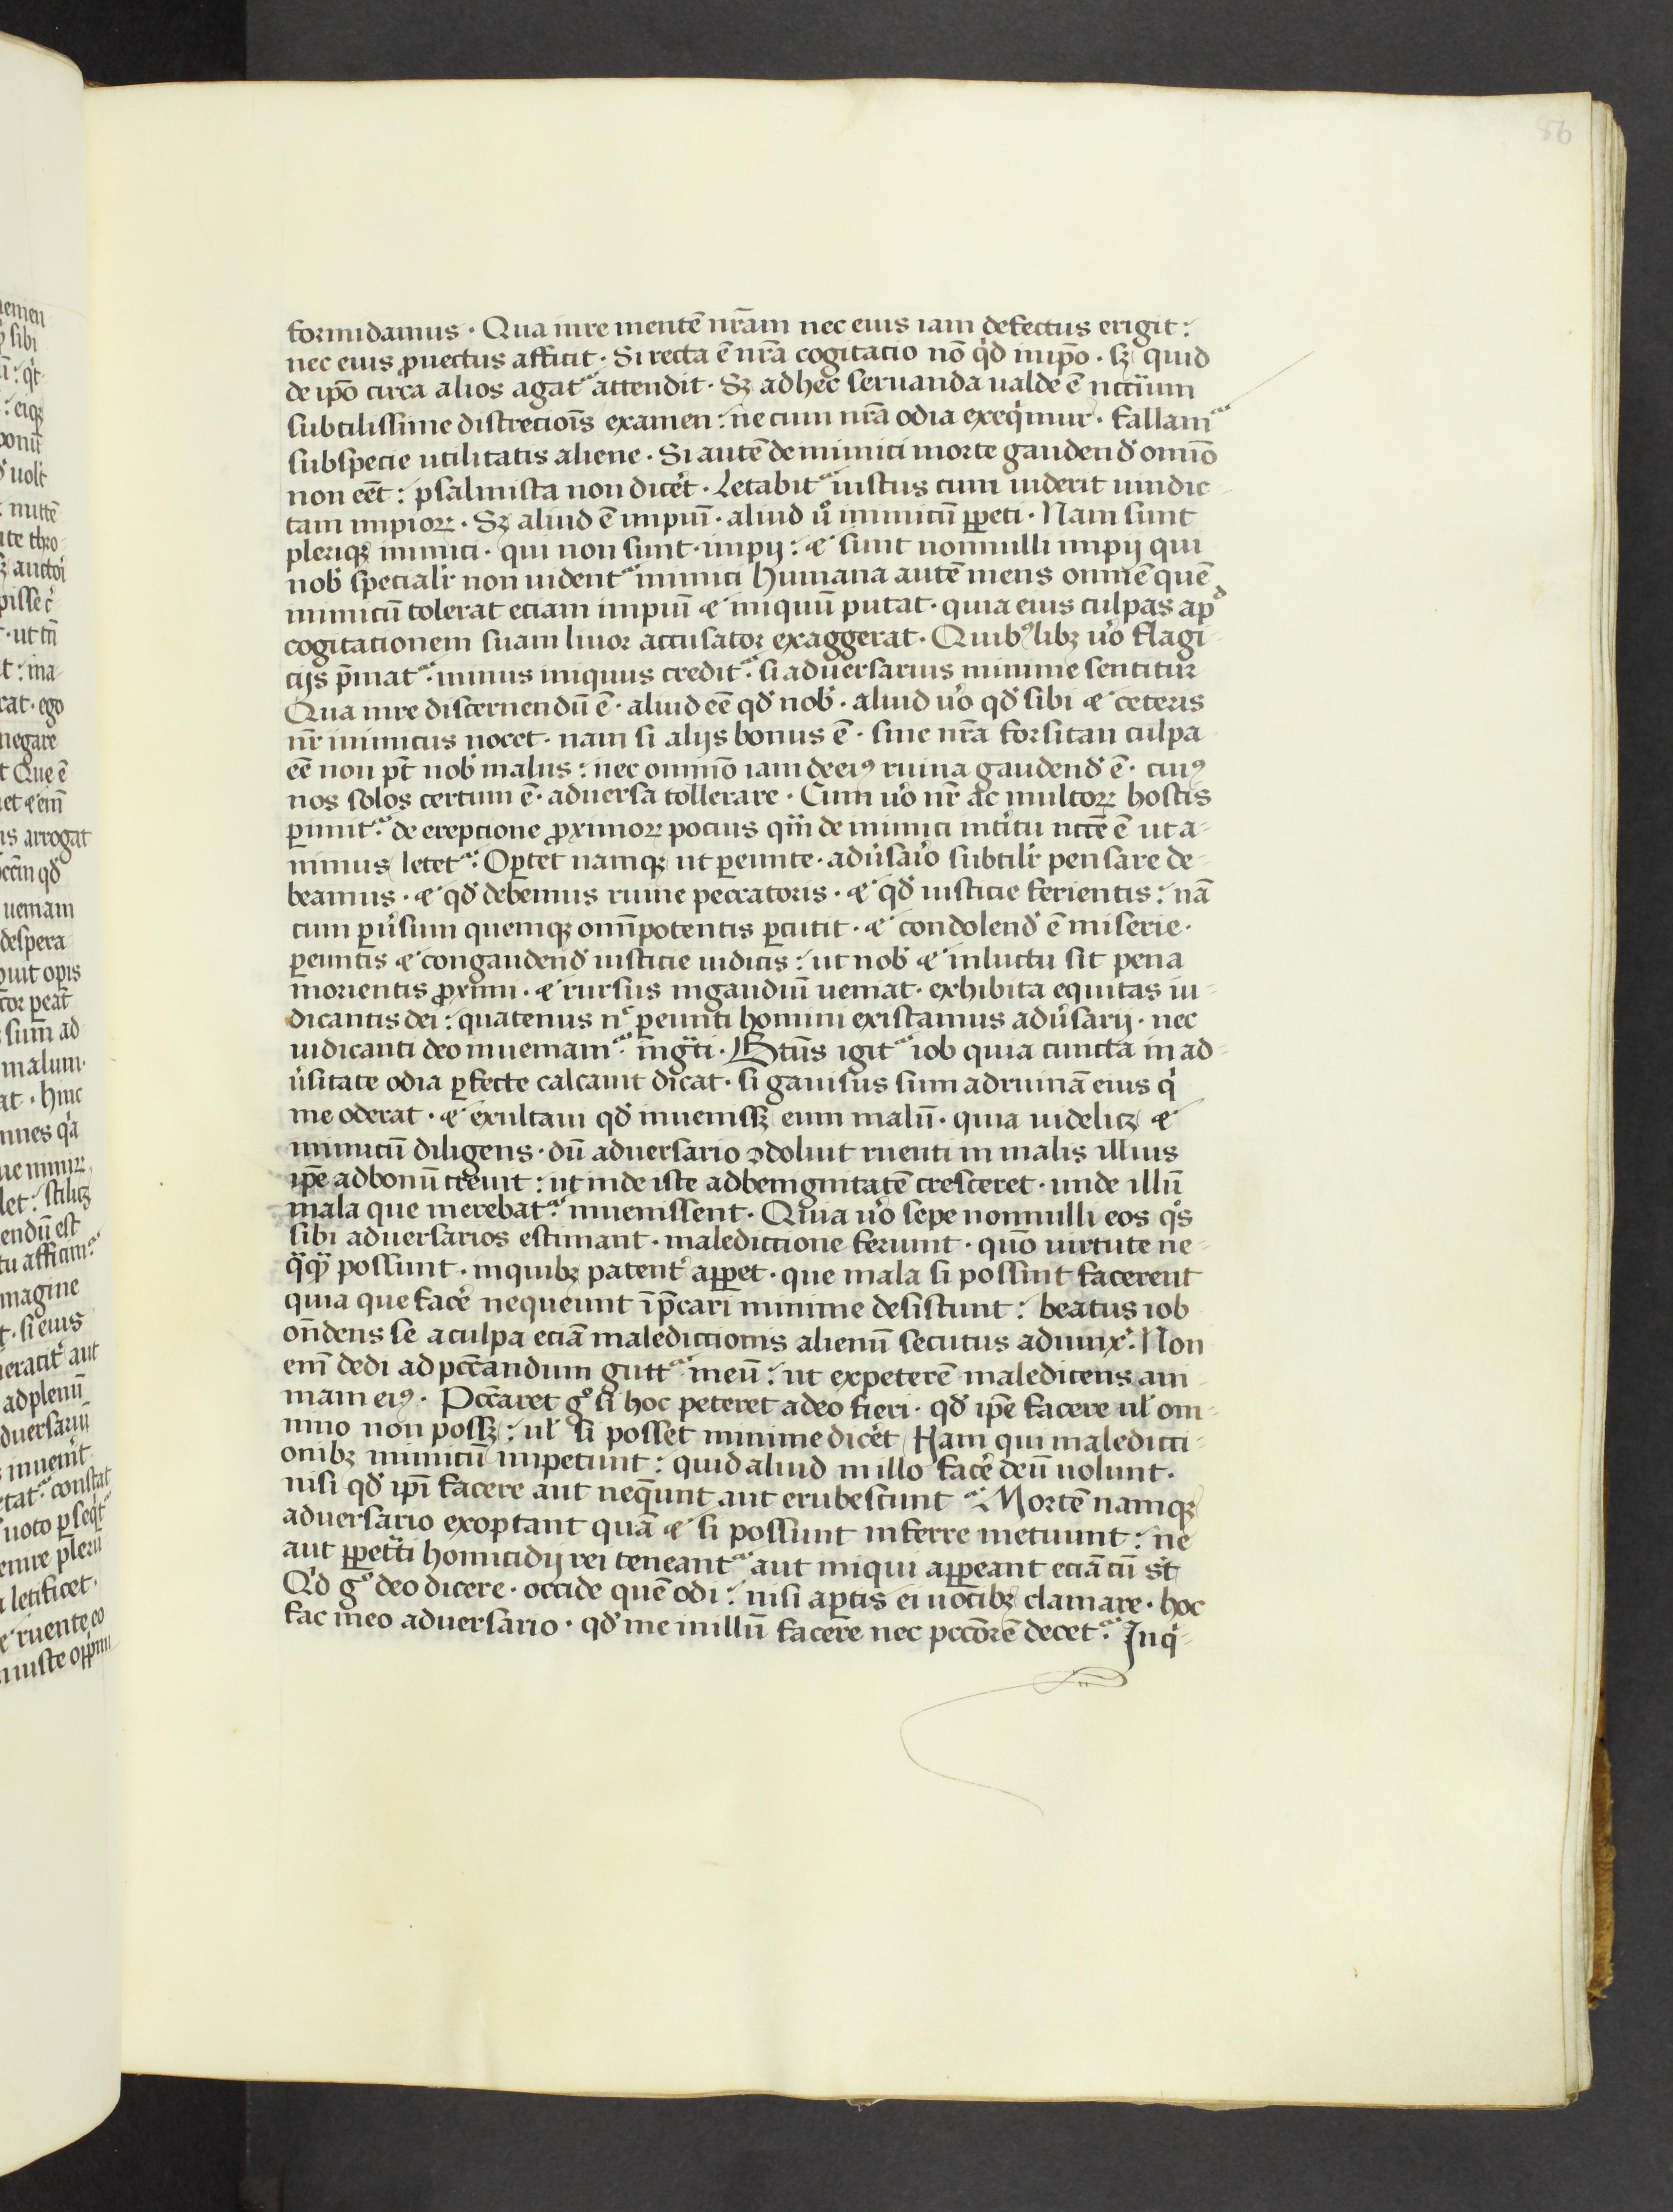 formidamus · Qua inre mentē nr̄am nec eius iam defectus erigit :
nec eius ꝓuectus afficit · Si recta ē nr̄a cogitacio nō qͥd inip̄o · sꝫ quid
de ip̄o circa alios agatᷣ attendit · Sꝫ ad hec seruanda ualde ē nccīum
subtilissime discrecioīs examen : ne cum nr̄a odia exeqͥmur · fallamᷣ
subspecie utilitatis aliene · Si autē de inimici morte gaudend̓ omīo
non eēt : psalmista non dicet̓ · Letabitᷣ iustus cum uiderit uindic-
tam impioꝝ · Sꝫ aliud ē impiū · aliud u̓ inimicū ꝑpeti · Nam sunt
pleriqꝫ inimici · qui non sunt · impij : & sunt nonnulli impij qui
nob̓ specialr̓ non uidentᷣ inimici Humana autē mens omnē quē
inimicū tolerat eciam impiū & iniquū putat · quia eius culpas apᵈ
cogitationem suam liuor accusator exaggerat · Quibꝰlibꝫ u̓o flagi-
cijs p̄matᷣ · minus iniquus creditᷣ si aduersarius minime sentitur
Qua inre discernendū ē · aliud eē qd̓ nob̓ · aliud u̓o qd̓ sibi & ceteris
nr̄ inimicus nocet · nam si alijs bonus ē · sine nr̄a forsitan culpa
eē non pt̄ nob̓ malus : nec omnīo iam de eiꝰ ruina gaudend̓ ē · cuiꝰ
nos solos certum ē · aduersa tollerare · Cum u̓o nr̄ ac multoꝝ hostis
ꝑimitᷣ · de erepcione ꝓximoꝝ pocius qͣm de inimici intitu nccē ē ut a-
nimus letetᷣ · Oꝑtet namqꝫ ut ꝑeunte · adu̓sario subtilr̓ pensare de-
beamus · & qd̓ debemus ruine peccatoris · & qd̓ iusticie ferientis : nā
cum ꝑu̓sum quemqꝫ omīpotentis ꝑcutit · & condolend̓ ē miserie ·
ꝑeuntis & congaudend̓ iusticie iudicis : ut nob̓ & inluctu sit pena
morientis ꝓximi · & rursus ingaudiū ueniat · exhibita equitas iu-
dicantis dei : quatenus nᵉ ꝑeunti homini existamus adu̓sarij · nec
iudicanti deo inueniamᷣ · īgͣti · Btūs igitᷣ iob quia cuncta in ad-
u̓sitate odia ꝑfecte calcauit dicat · si gauisus sum adruinā eius qͥ
me oderat · & exultaui qd̓ inuenissꝫ eum malū · quia uidelicꝫ &
inimicū diligens · dū aduersario ↄdoluit ruenti in malis illius
ip̄e adbonū creuit : ut inde iste adbenignitatē cresceret · unde illū
mala que merebatᷣ · inuenissent · Quia u̓o sepe nonnulli eos qͦs
sibi aduersarios estimant · maledictione feriunt · quō uirtute ne-
qͣqͣ possunt · inquibꝫ patent̓ apꝑet · que mala si possint facerent
quia que facē nequeunt īp̄cari minime desistunt : beatus iob
ōndens se aculpa eciā maledictionis alienū secutus adiūxͭ · Non
enī dedi ad pcc̄andum guttᷣ meū : ut expeterē maledicens ani
mam eiꝰ · Pcc̄aret gͦ si hoc peteret adeo fieri · qd̓ ip̄e facere ul̓ om-
nino non possꝫ : ul̓ si posset minime dicet̓ Nam qui maledicti-
onibꝫ inimicū impetunt : quid aliud inillo facē deū uolunt ·
nisi qd̓ ip̄i facere aut neq̄unt aut erubescunt · Mortē namqꝫ
aduersario exoptant quā & si possunt inferre metuunt : ne
aut ꝑpetͣti homicidij rei teneantᷣ aut iniqui apꝑeant eciā cū st̄
Qͥd gͦ deo dicere · occide quē odi : nisi aꝑtis ei uocibꝫ clamare · hoc
fac meo aduersario · qd̓ me inillū facere nec pccōrē decetᷣ · Inqͥ-